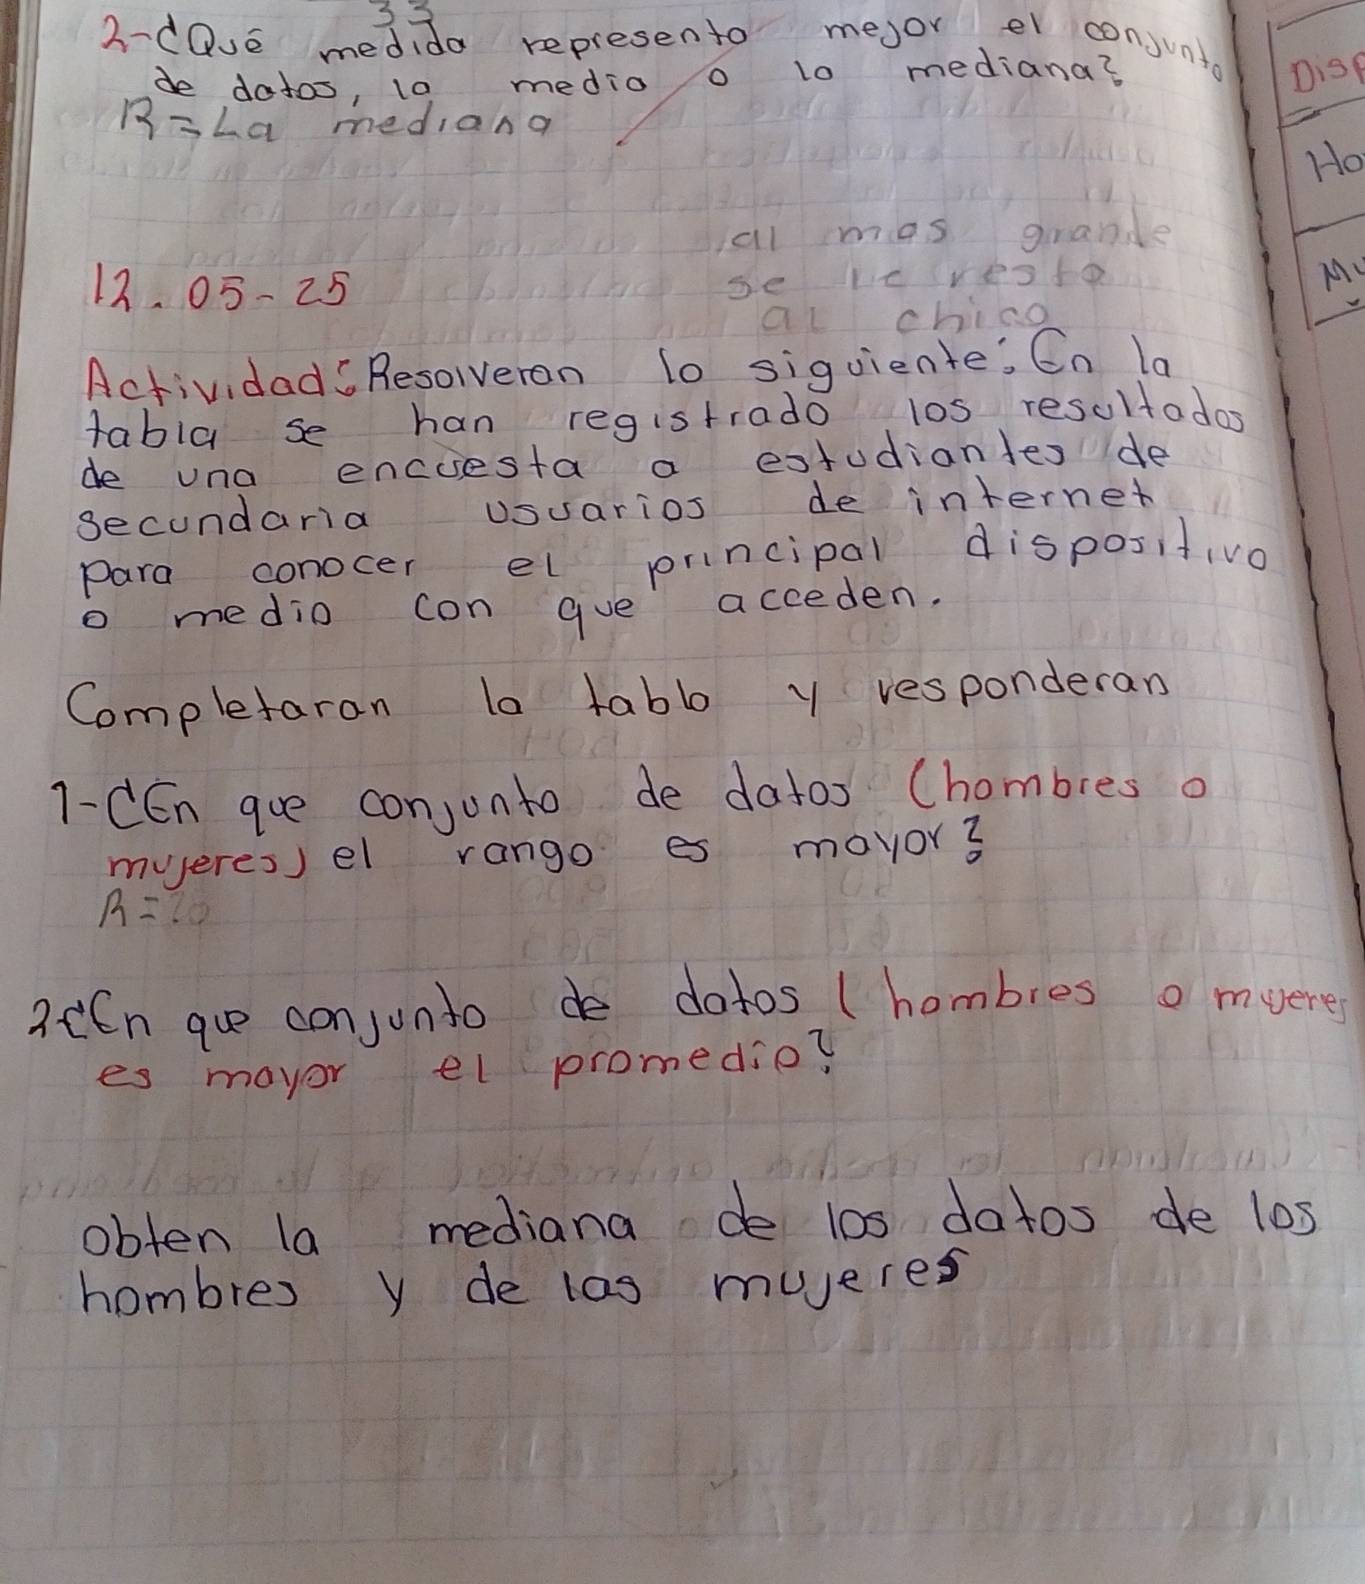 33
2-¿Qué medida representa mejor el conjunto
de datos, la media o la mediana?
R=La mediana
al mas grande
se le resta
al chico
12.05-25
Actividad: Resolveran lo siguiente: En la
tabla se han registrado los resultados
de una encuesta a estudiantes de
secundaria usuarios de internet
para conocer el principal dispositivo
o medio con que acceden.
Completaran la tabla y responderan
1-¿En que conjunto de datos (hombres o
mujeres) el rango es mayor?
R=20
2¿En que conjunto de datos (hombres o mujeres
es mayor el promedio?
obten la mediana de los datos de los
hombres y de las mujeres
Disp
Ho
Mu